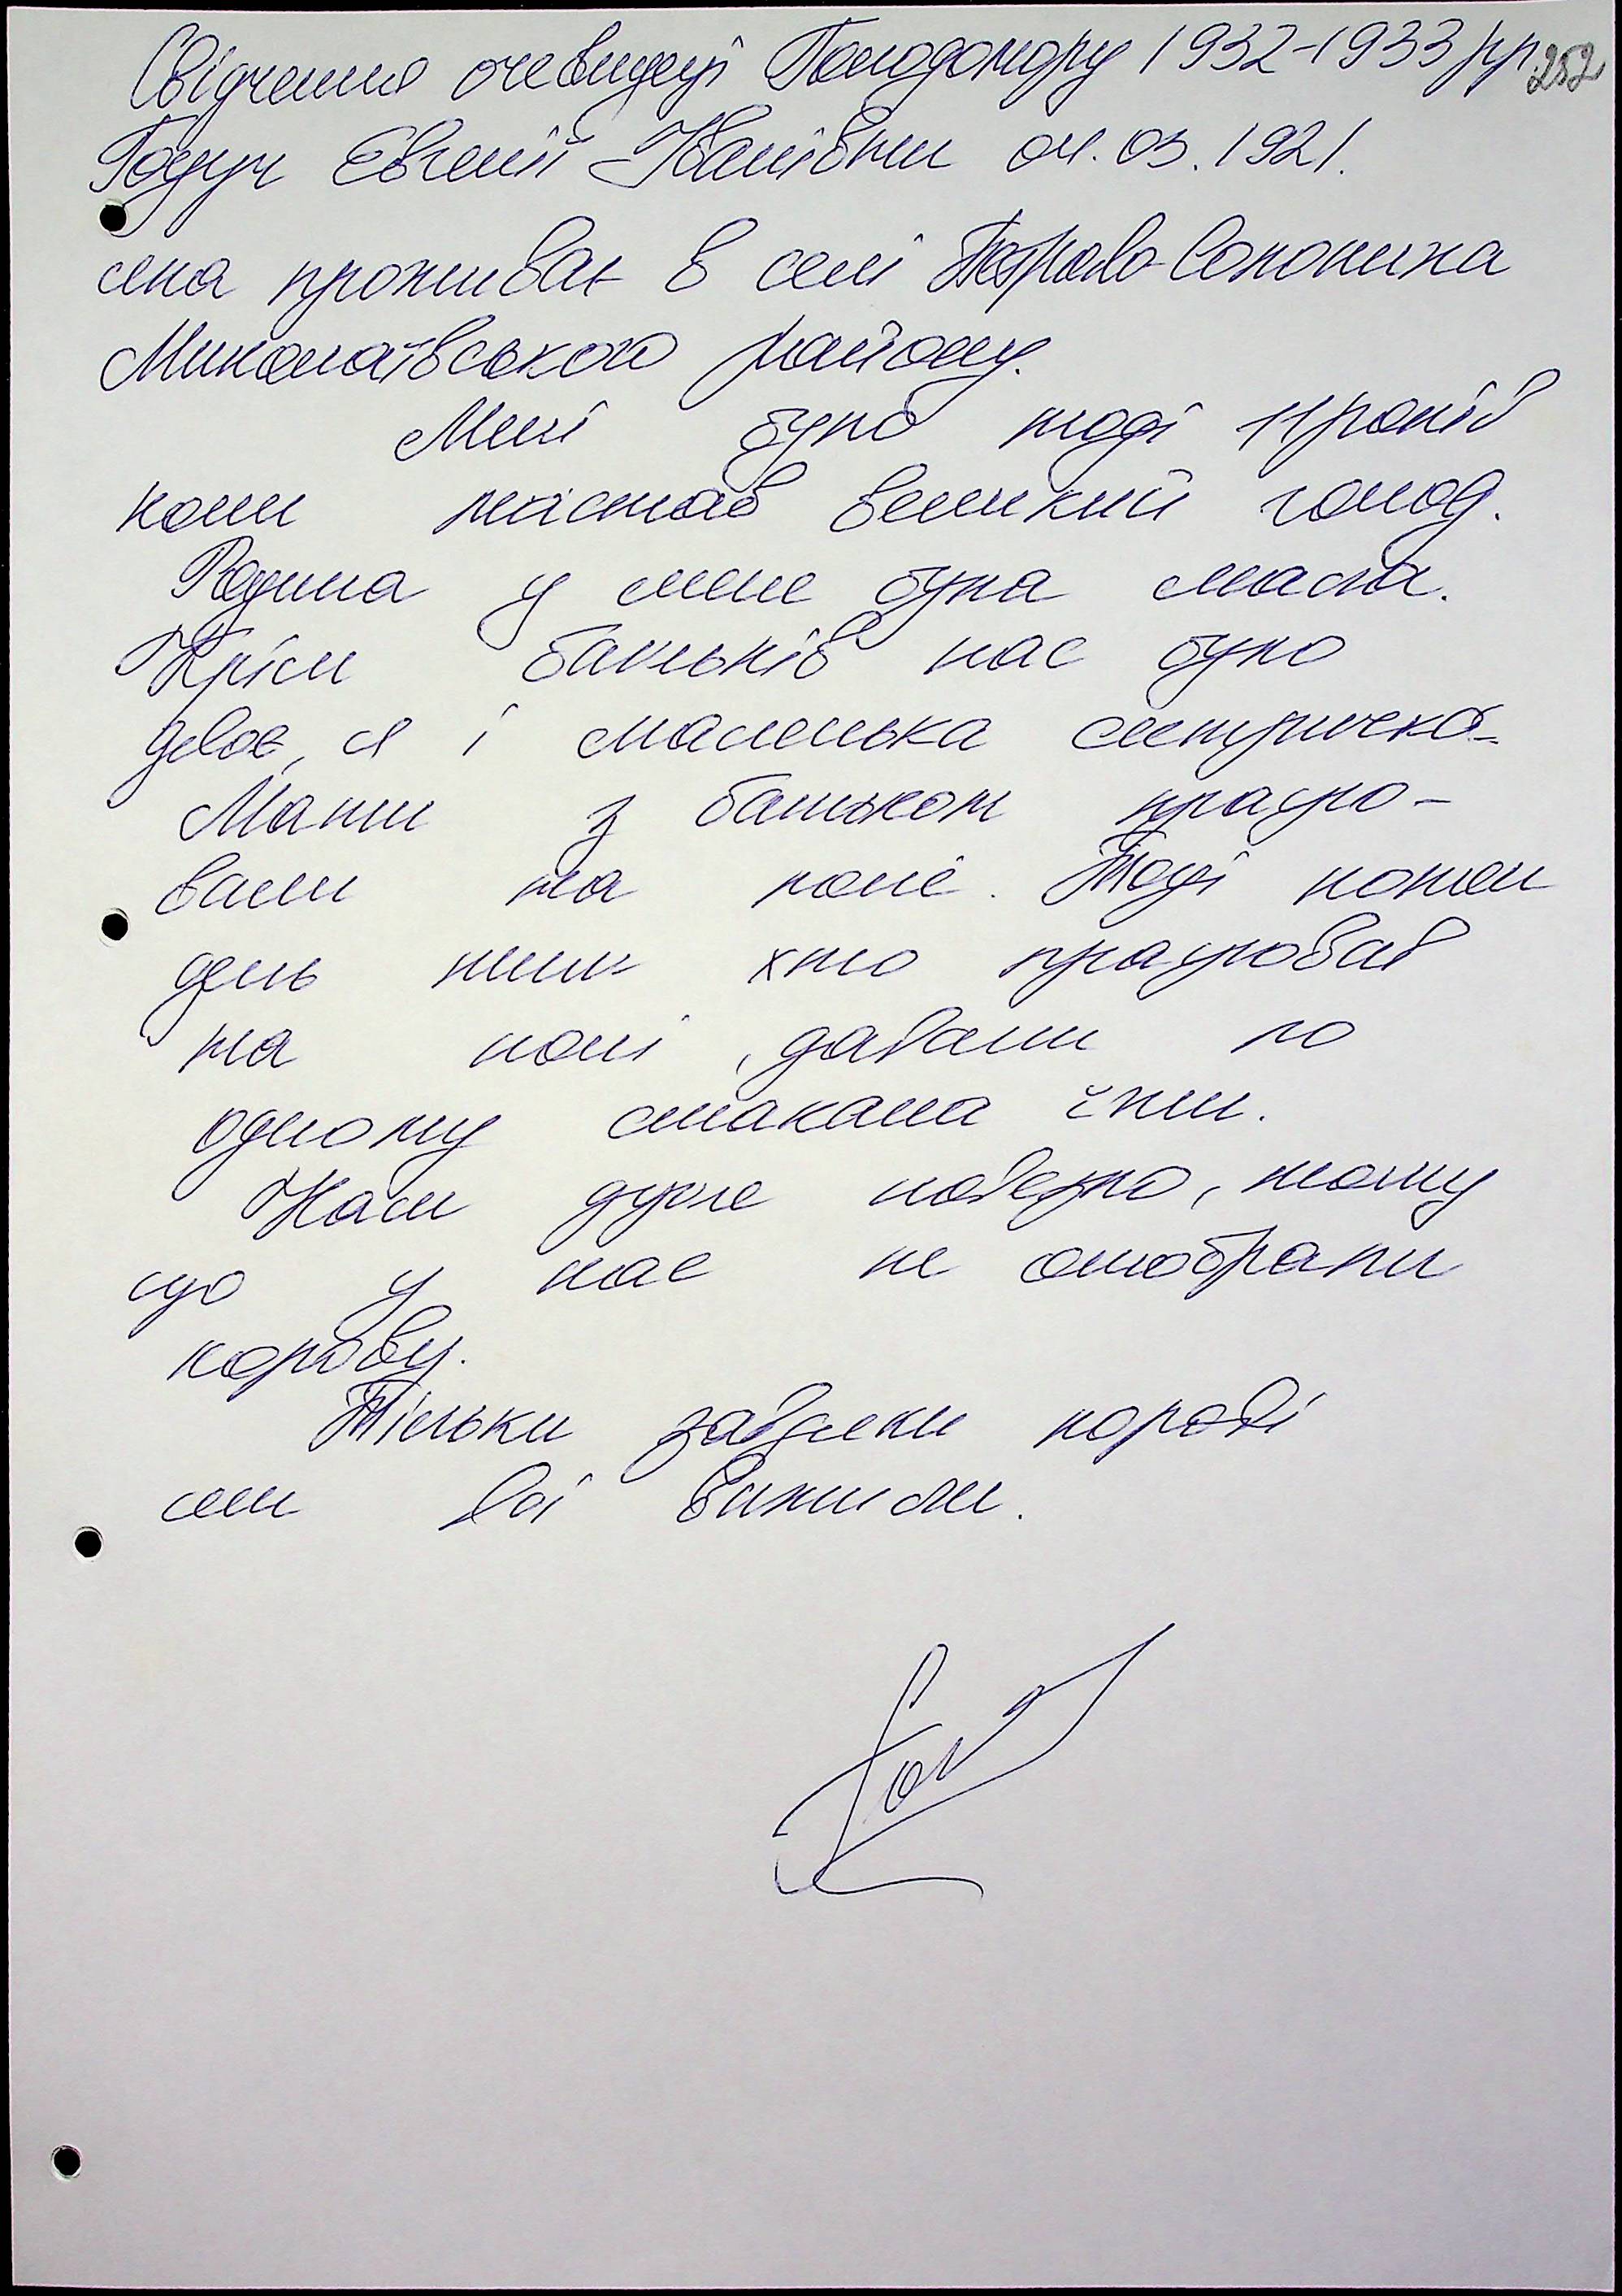 Свідчення очевидця Голодомору 1932-1933 рр. 252
Годун Євгенії Іванівни 04.03.1921.
яка проживає в селі Петрово-Солониха
Миколаївського району.
Мені було тоді 11 років
коли настав великий голод.
Родина у мене була мала.
Крім батьків нас було
двоє, я і маленька сестричка.
Мати з батьком працю-
вали на полі. Тоді кожен
день тим хто працював
на полі, давали по
одному стакана їжи.
Нам дуже повезло, тому
що у нас не отобрали
корову.
Тільки завдяки корові
ми всі вижили.